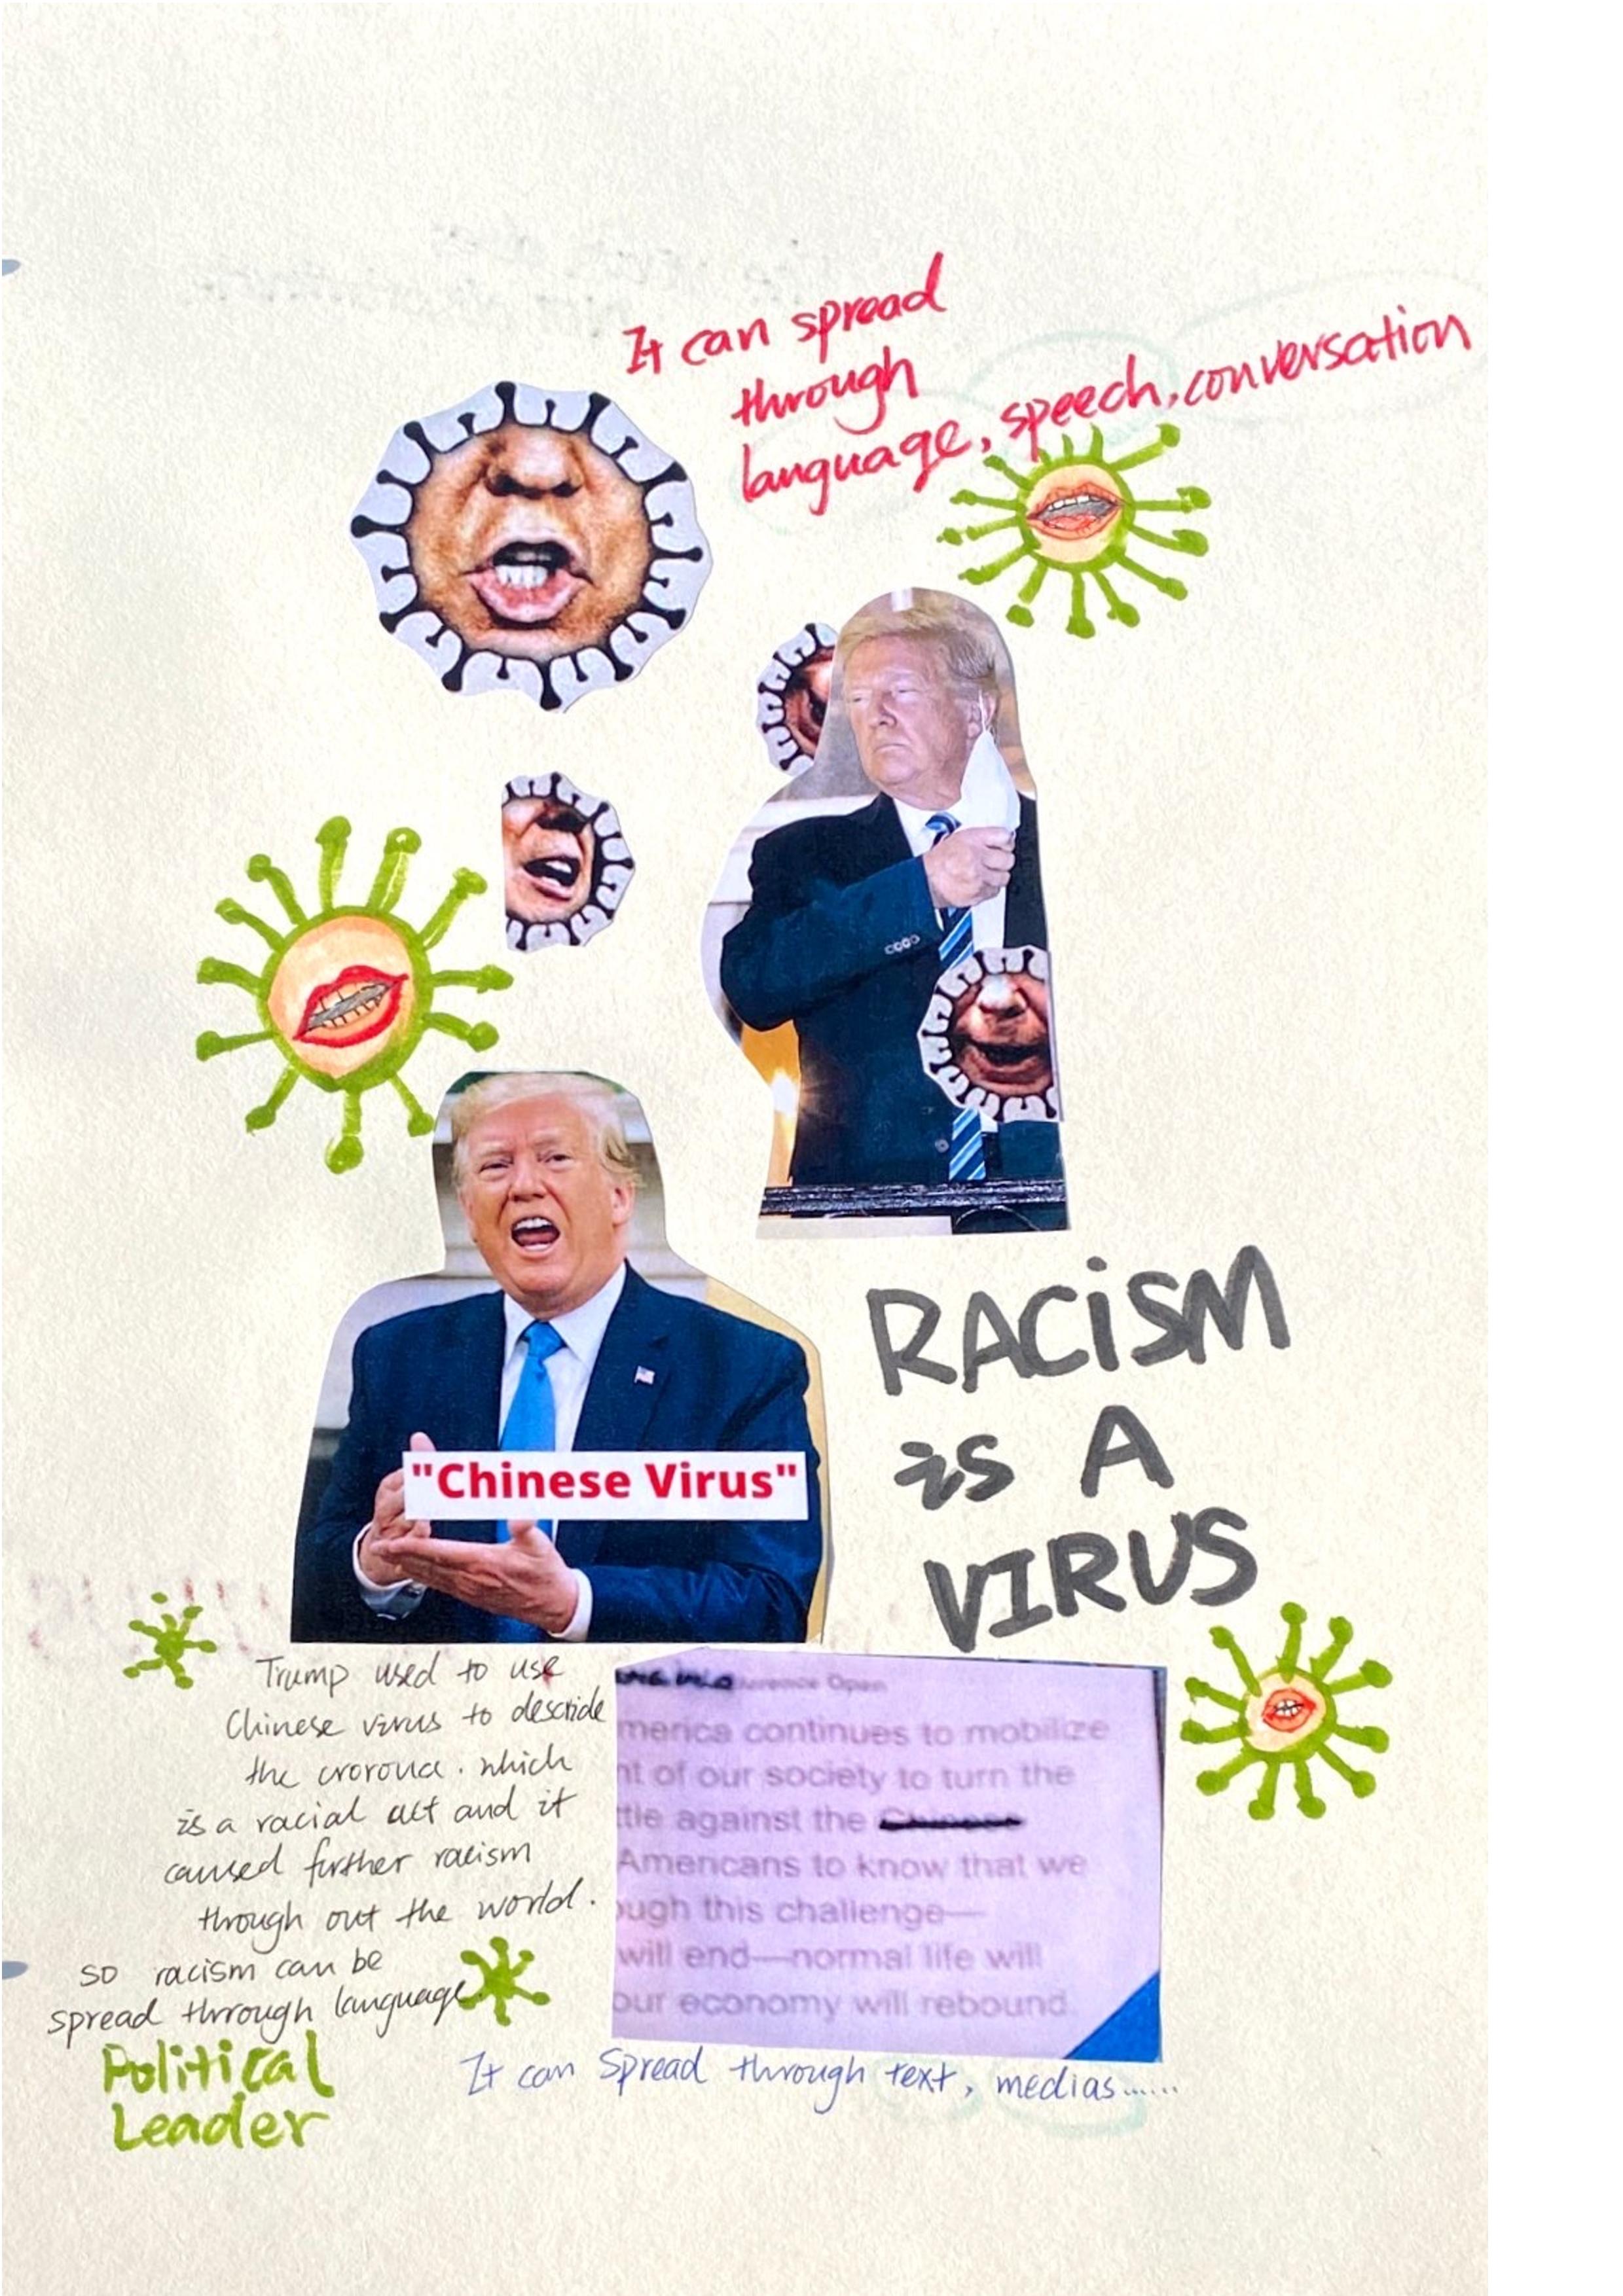 It can spread
through
language, speech, conversation
"Chinese Virus"
RACISM
is A
VIRUS
Trump used to use
Chinese virus to descride
the crorona. which
is a racial act and it
caused further racism
through out the world.
so racism can be
spread through language.
Political
Leader
merica continues to mobilize
nt of our society to turn the
tle against the
Americans to know that we
ough this challenge—
will end—normal life will
our economy will rebound
It can Spread through text, medias......